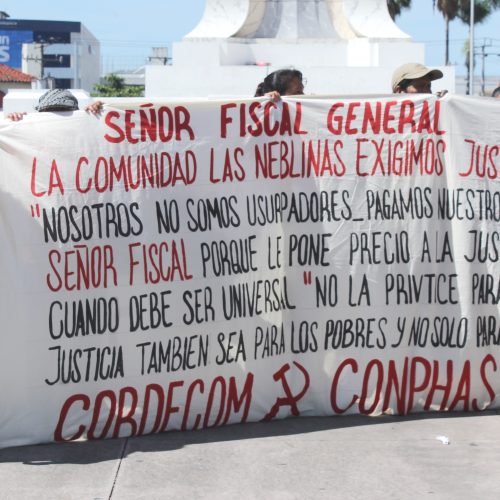 SEÑOR FISCAL GENERAL
LA COMUNIDAD LAS NEBLINAS EXIGIMOS JUS
"NOSOTROS NO SOMOS USURPADORES_PAGAMOS NUESTRO
SEÑOR FISCAL PORQUE LE PONE PRECIO A LA JUS
CUANDO DEBE SER UNIVERSAL "NO LA PRIVTICE PARA
JUSTICIA TAMBIEN SEA PARA LOS POBRES Y NO SOLO PARA
CORDECOM CONPHAS